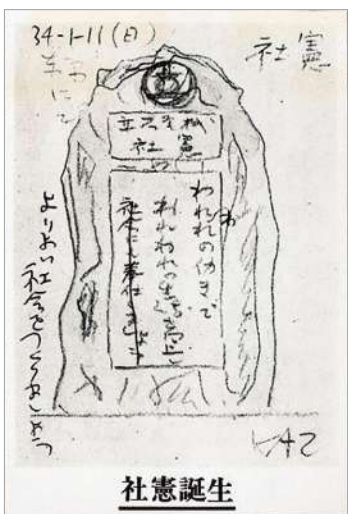 34-1-11(日)
社憲
立石
社憲
われわれの仂きで
われわれの生活を向上し
社会に奉仕しましょう
よりよい社会をつくりましょう
KAZ
社憲誕生